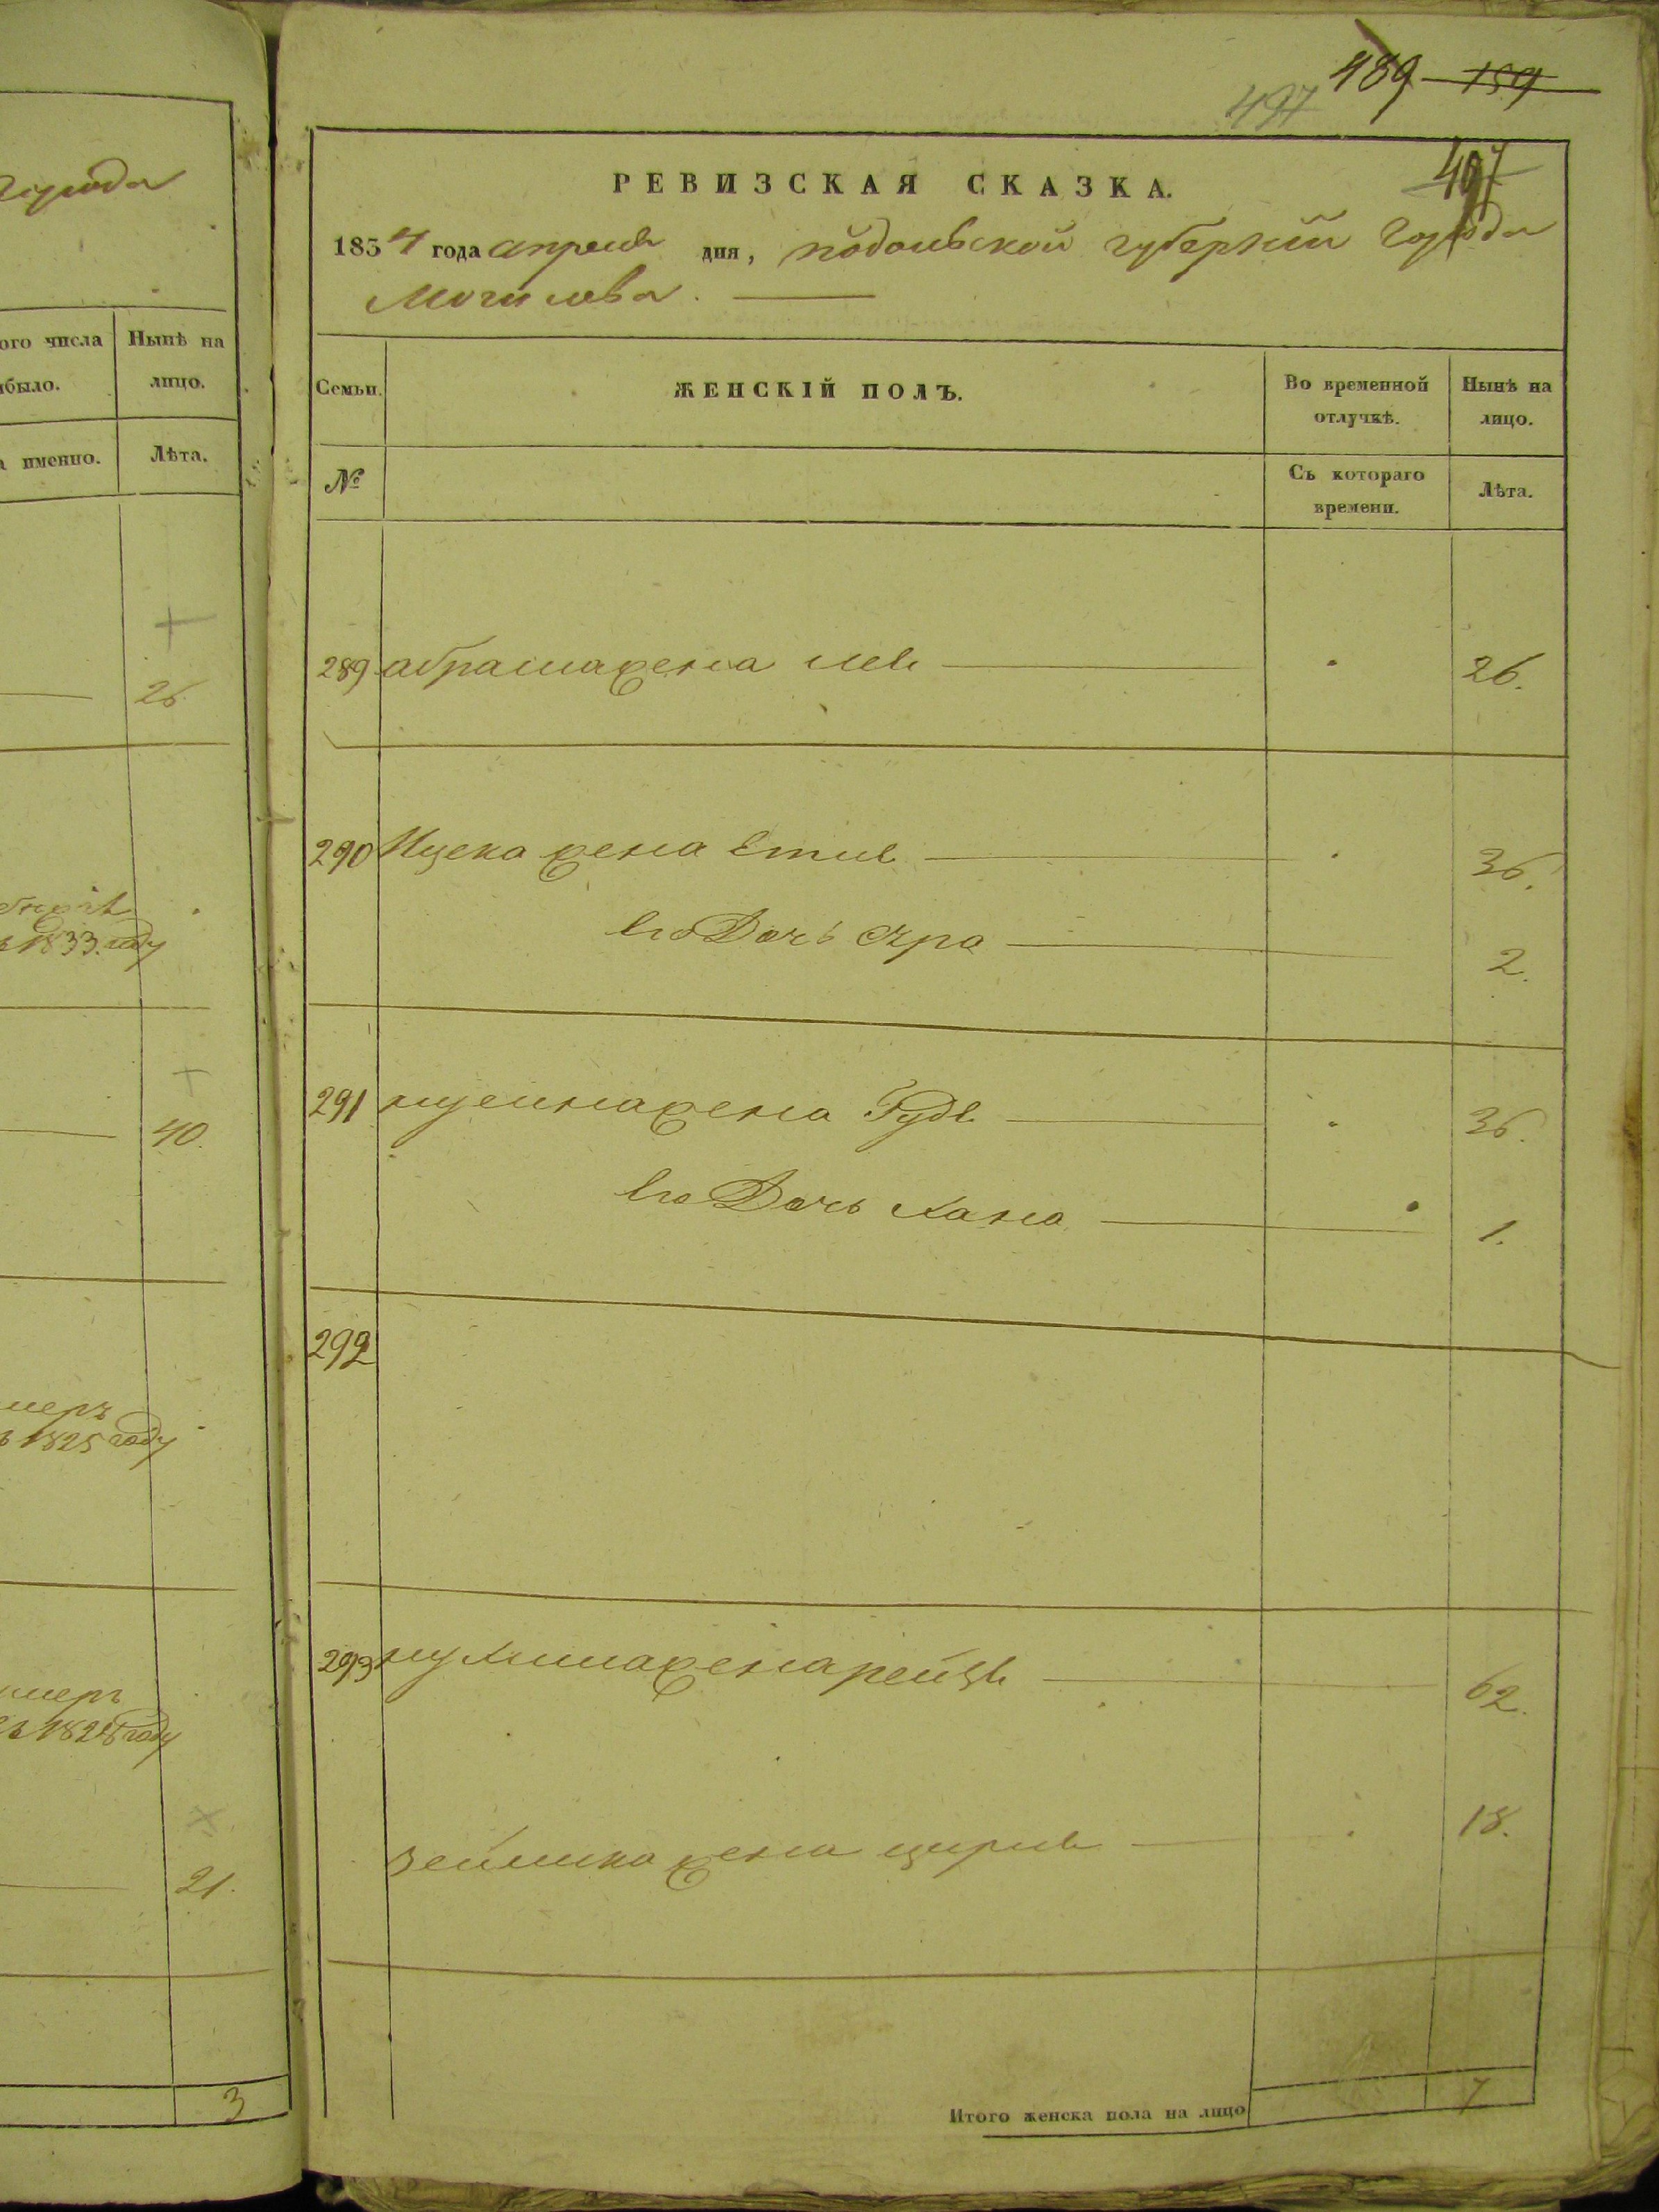 города
ого числа
было.
Нынѣ на
лицо.
именно.
Лѣта.
26
1833 году
40.
умеръ
1825 году
умеръ
1828 году
21.
3
489 159
497
497
РЕВИЗСКАЯ СКАЗКА.
1834 года апреля дня, подольской губернии города
Могилева.
Семьи.
ЖЕНСКІЙ ПОЛЪ.
Во временной
отлучкѣ.
Нынѣ на
лицо.
№
Съ котораго
времени.
Лѣта.
289 абрама жена 26.
290 Ицека жена 36.
его Дочь 2.
291 жена Гудя 36.
его Дочь Хана 1.
292
293 нухима жена рейзя 62.
зейлика жена цирля 18.
Итого женска пола на лицо 7